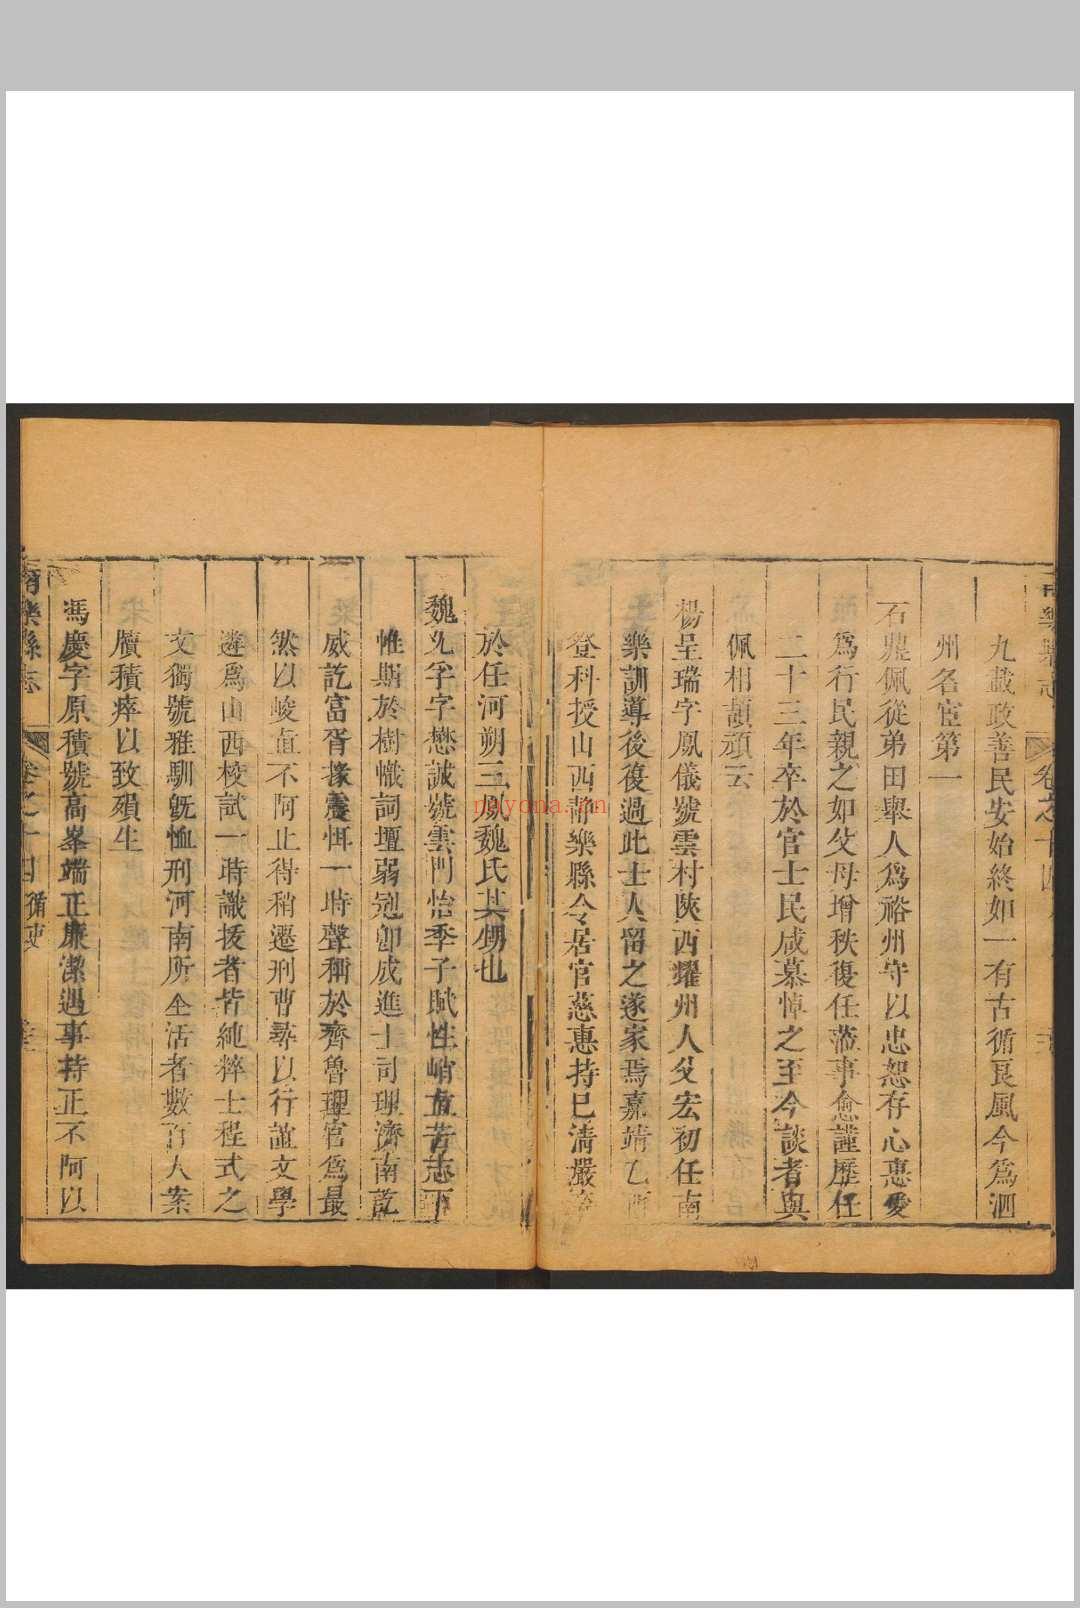 九載政善民安始終如一有古循良風今爲泗
州名宦第一
石鼎佩從弟田舉人爲裕州守以忠恕存心惠愛
爲行民親之如父母增秩復任蒞事愈謹歷任
二十三年卒於官士民咸慕悼之至今談者與
佩相頡頏云
楊呈瑞字鳳儀號雲村陝西耀州人父宏初任南
樂訓導後復過此士人留之遂家焉嘉靖乙酉
登科授山西靜樂縣令居官慈惠持已清嚴卒
於任河朔王鳳魏氏其甥也
魏允孚字懋誠號雲門怡季子賦性峭直苦志下
惟斯於樹幟詞壇弱冠卽成進士司理濟南訖
威訖富胥掾震恒一時聲稱於齊魯理官爲最
然以峻直不阿止得稍遷刑曹尋以行誼文學
遴爲山西校試一時識拔者皆純粹士程式之
文獨號雅馴旣恤刑河南所全活者數百人案
牘積瘁以致殞生
馮慶字原積號高峯端正廉潔遇事持正不阿以
南樂縣志
卷之十四
循吏
nayona.cn